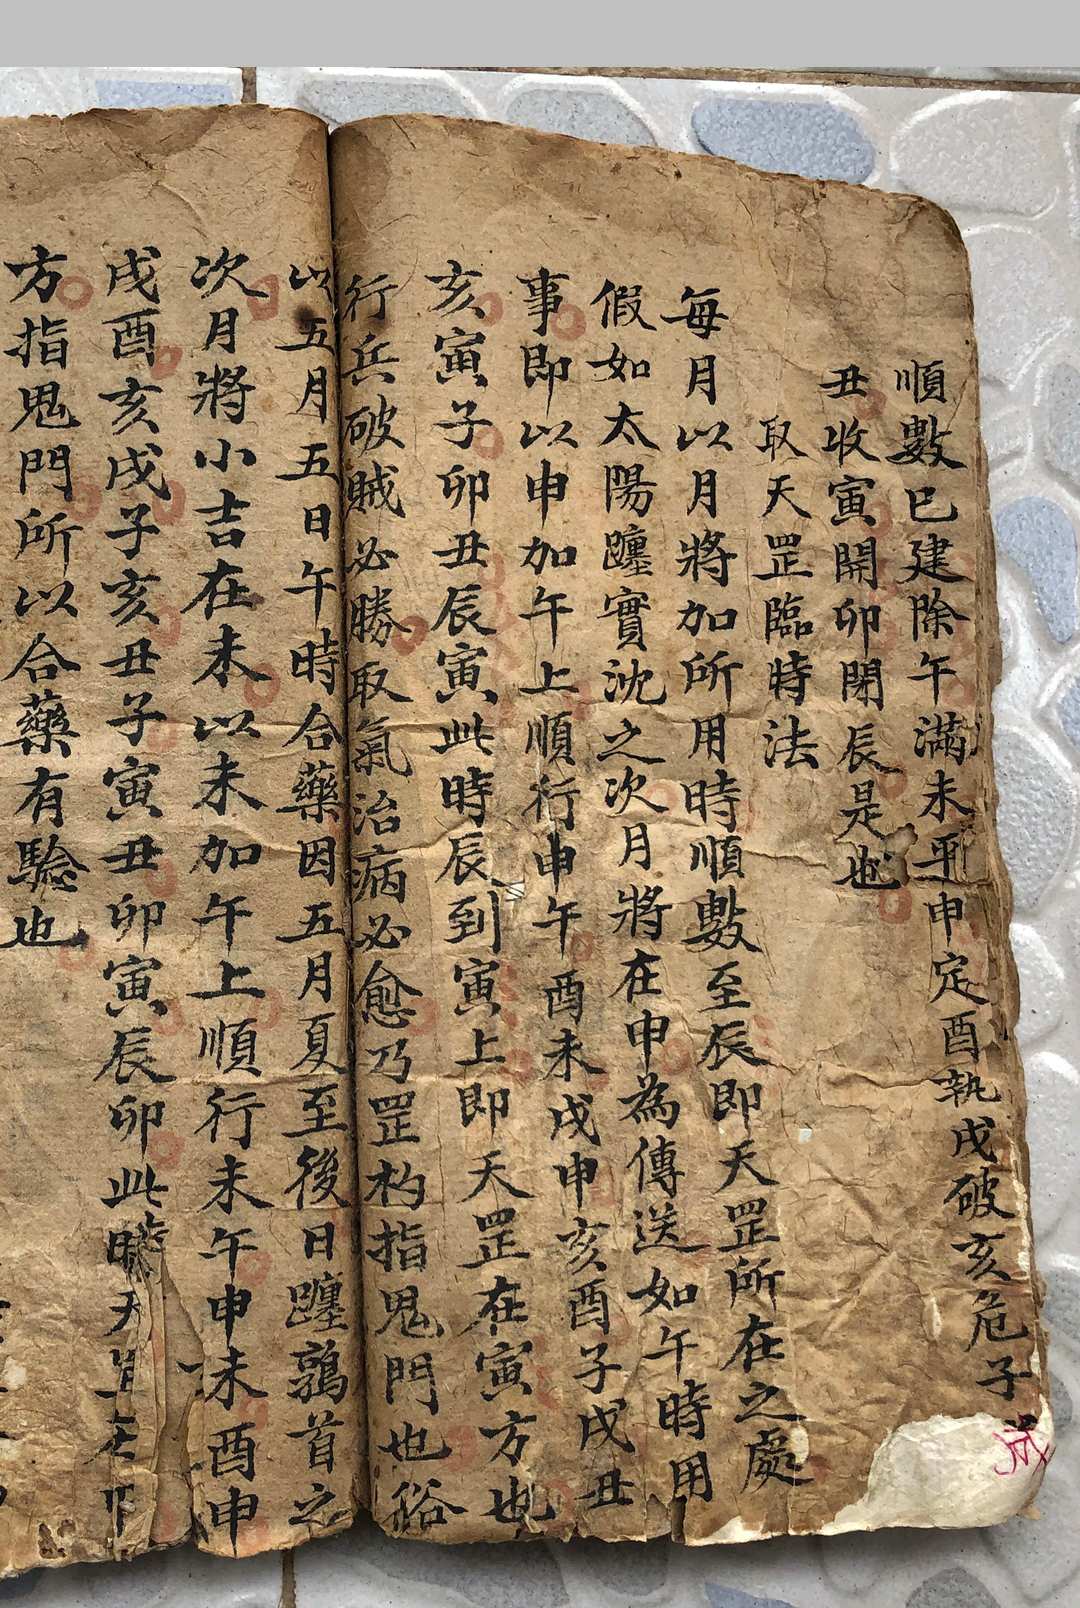 順數巳建除午滿未平申定酉執戌破亥危子成
丑收寅開卯閉辰是也
取天罡臨時法
每月以月將加所用時順數至辰即天罡所在之處
假如太陽躔實沈之次月將在申為傳送如午時用
事即以申加午上順行申午酉未戌申亥酉子戌丑
亥寅子卯丑辰寅此時辰到寅上即天罡在寅方也
行兵破賊必勝取氣治病必愈乃罡杓指鬼門也俗
以五月五日午時合藥因五月夏至後日躔鶉首之
次月將小吉在未以未加午上順行未午申未酉申
戌酉亥戌子亥丑子寅丑卯寅辰卯此時天罡在
方指鬼門所以合藥有驗也